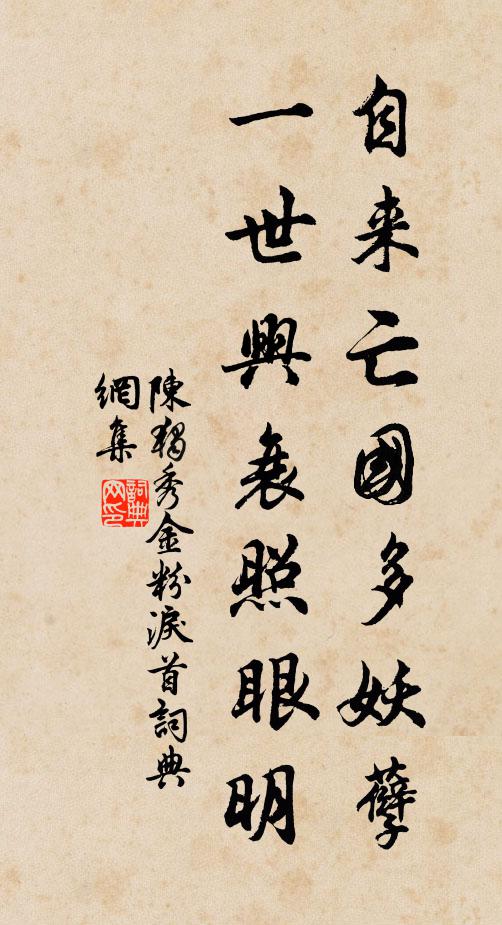 自来亡國多妖孽
一世興衰照眼明
陳獨秀金粉淚首詞典
網集
詞典
网印